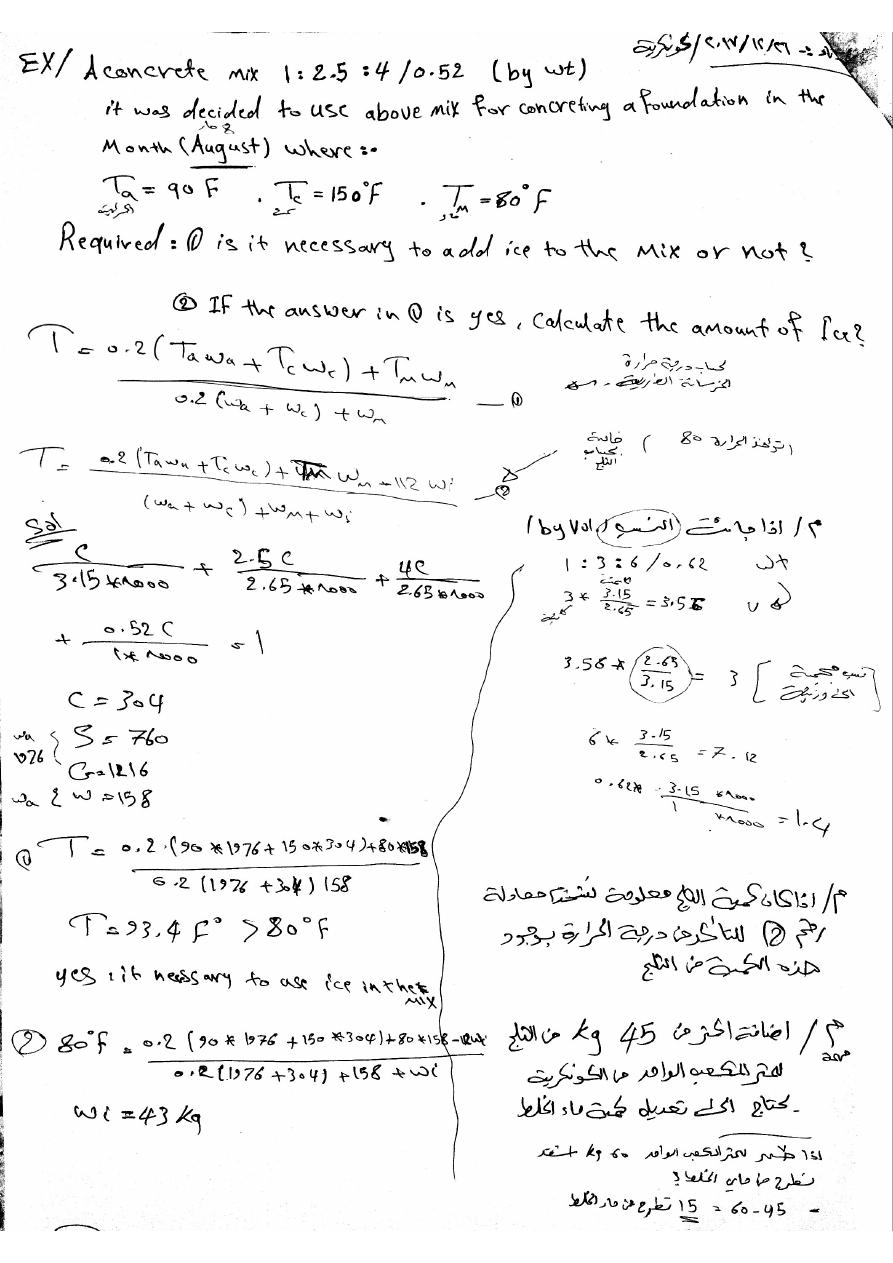 ٢٠١٧/١٢/٢٦ / كونكريت
EX/ A concrete mix 1:2.5:4/0.52 (by wt)
it was decided to use above mix for concreting a foundation in the
Month (August) where :-
Ta = 90 F . Tc = 150°F . TM = 80°F
Required: ① is it necessary to add ice to the Mix or not?
② If the answer in ① is yes, calculate the amount of Ice?
T = 0.2(Ta wa + Tc wc) + TM wM
0.2 (wa + wc) + wM — ①
لحساب درجة حرارة
الخرسانة الطرية
T = 0.2 (Ta wa + Tc wc) + TM wM - 112 wi
(wa + wc) + wM + wi — ②
تؤخذ الحرارة 80
خاصة
بحساب
الثلج
Sol
C / 3.15*1000 + 2.5C / 2.65*1000 + 4C / 2.65*1000
+ 0.52C / 1*1000 = 1
C = 304
wa 1976 { S = 760
G = 1216
wa { w = 158
① T = 0.2 (90*1976 + 150*304) + 80*158
0.2 (1976 + 304) 158
T = 93.4 F° > 80°F
yes : it necessary to use ice in the
MIX
② 80°F = 0.2 (90*1976 + 150*304) + 80*158 - 112wi
0.2 (1976 + 304) + 158 + wi
wi = 43 kg
م/ اذا جائت النسب (by Vol)
1:3:6/0.62 wt
3 * 3.15 / 2.65 = 3.56
3.56 * 2.65 / 3.15 = 3 [ نسب حجمية
الى وزنية ]
6 * 3.15 / 2.65 = 7.12
0.62* 3.15 *1000 / 1 *1000 = 1.4
م/ اذا كان كمية الثلج معلومة نستخدم معادلة
رقم ② للتأكد من درجة الحرارة بوجود
هذه الكمية من الثلج
م/ اضافة اكثر من 45 kg من الثلج
للمتر المكعب الواحد من الكونكريت
يحتاج الى تعديل كمية ماء الخلط
اذا للمتر المكعب الواحد 60 kg
نطرح من ماء الخلط؟
60-45 = 15 تطرح من ماء الخلط